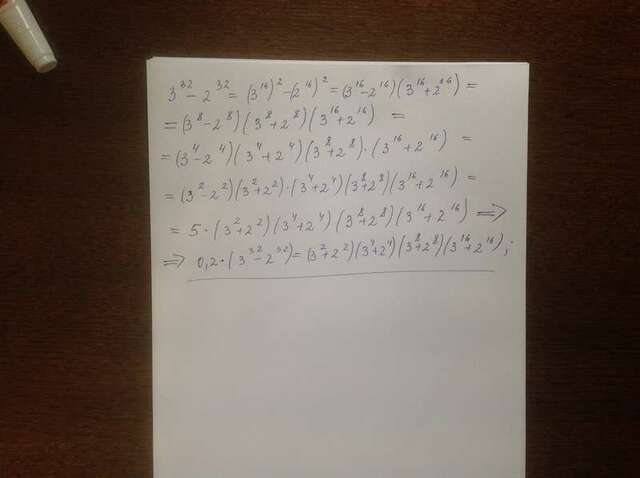 3^32 - 2^32 = (3^16)^2 - (2^16)^2 = (3^16 - 2^16)(3^16 + 2^16) =
= (3^8 - 2^8)(3^8 + 2^8)(3^16 + 2^16) =
= (3^4 - 2^4)(3^4 + 2^4)(3^8 + 2^8)·(3^16 + 2^16) =
= (3^2 - 2^2)(3^2 + 2^2)·(3^4 + 2^4)(3^8 + 2^8)(3^16 + 2^16) =
= 5·(3^2 + 2^2)(3^4 + 2^4)(3^8 + 2^8)(3^16 + 2^16) ⟹
⟹ 0,2·(3^32 - 2^32) = (3^2 + 2^2)(3^4 + 2^4)(3^8 + 2^8)(3^16 + 2^16);